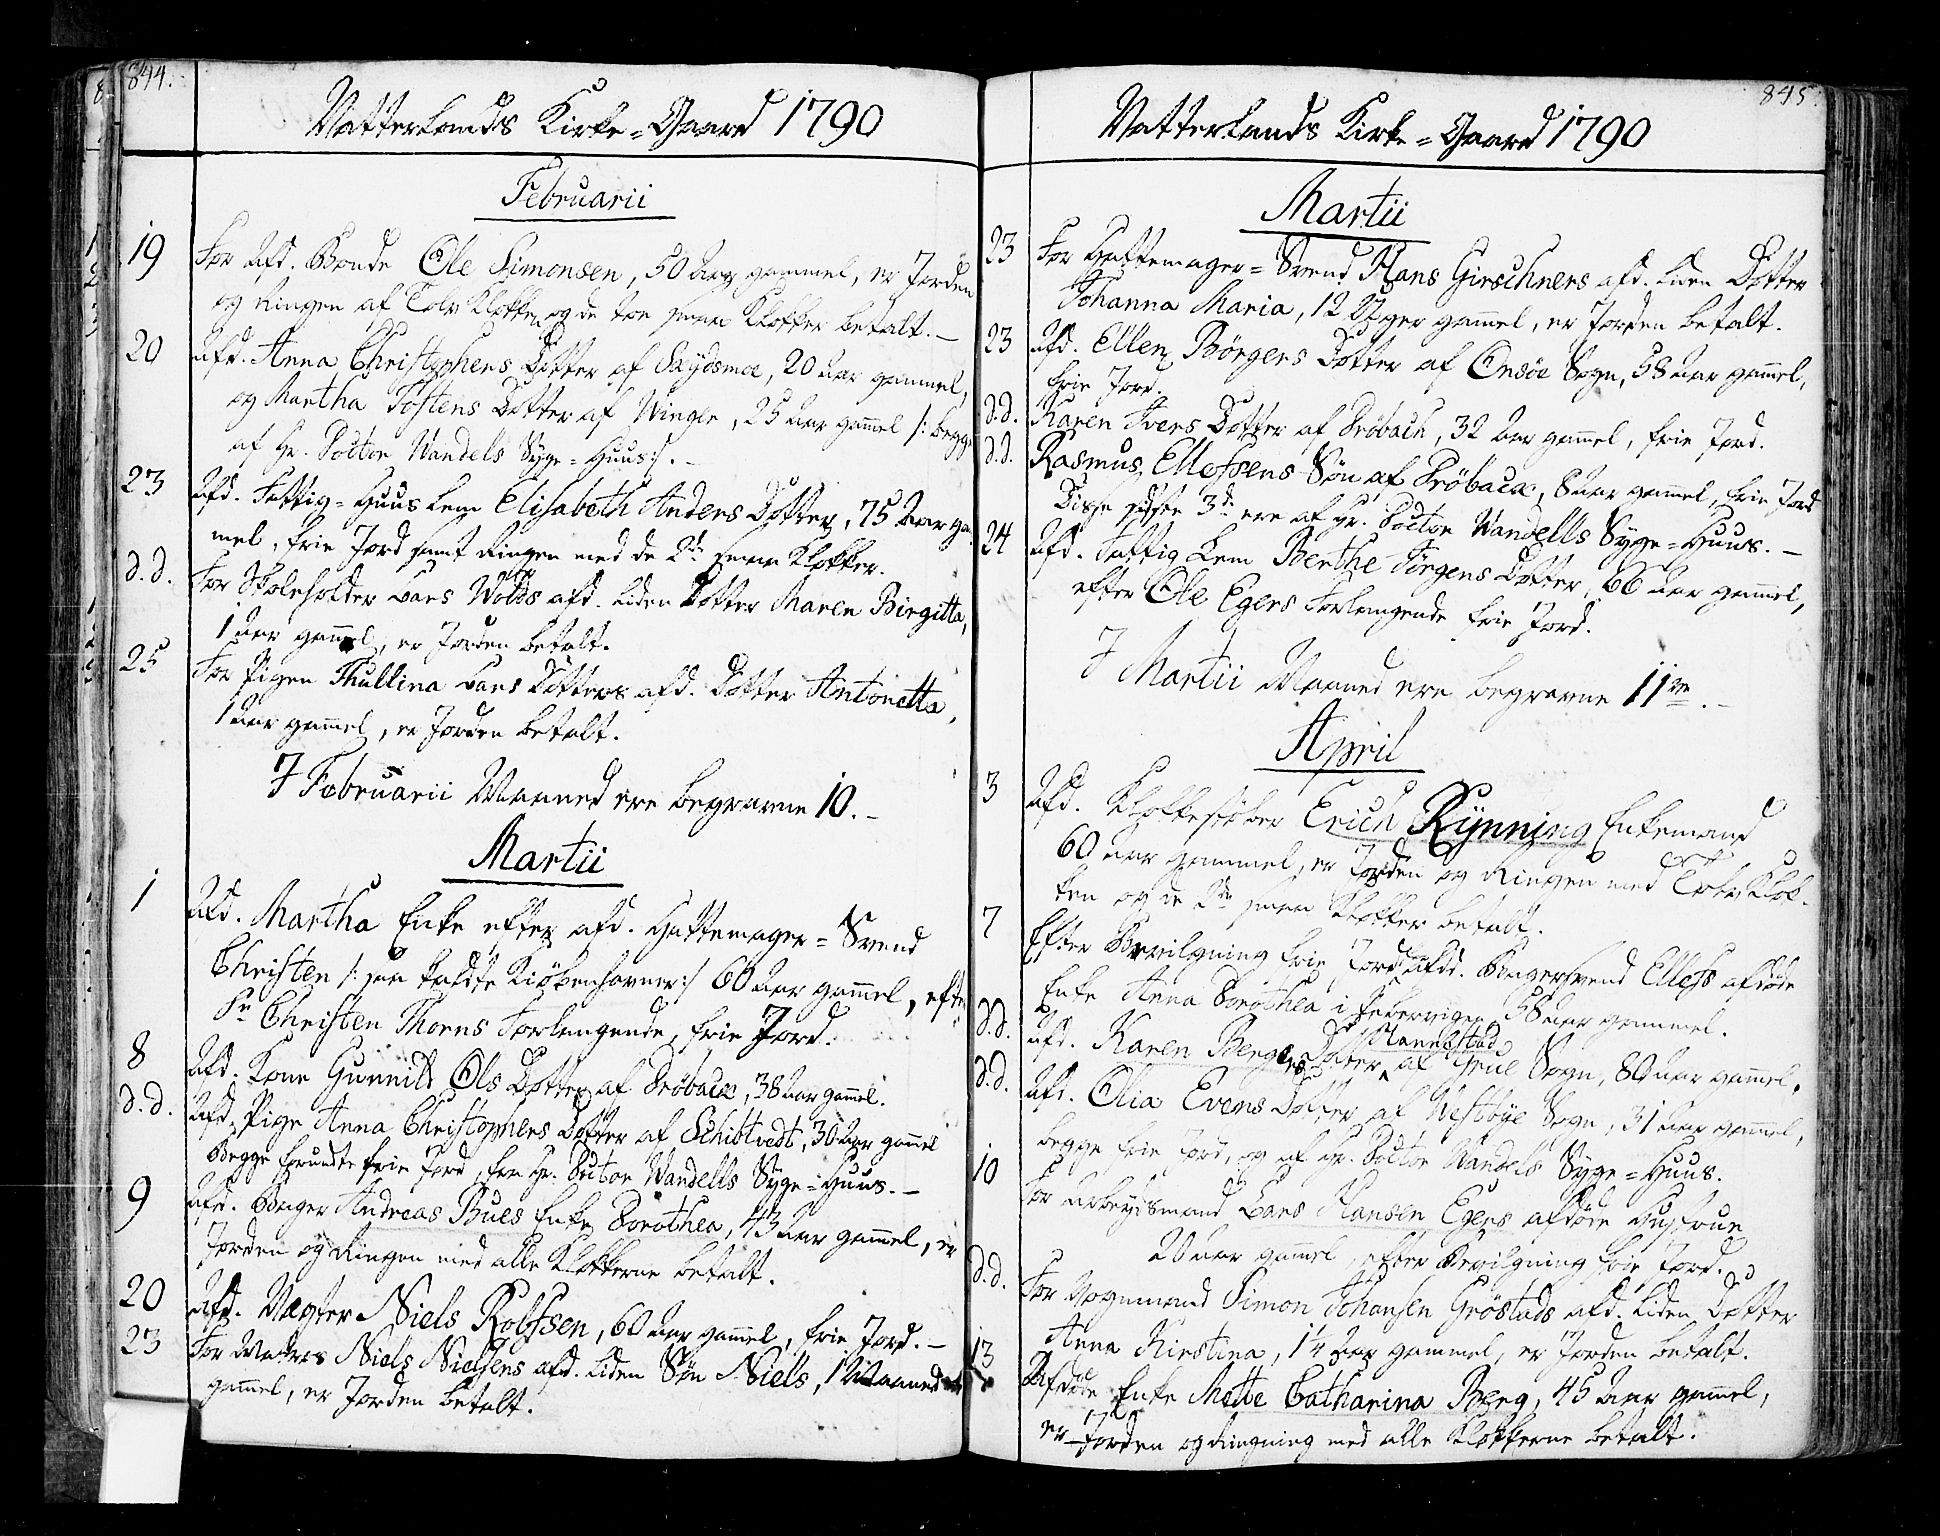 844.
Vatterlands Kirke=Gaard 1790
Februarii
19 For Afd. Bonde Ole Simonsen, 50 Aar gammel, er Jorden
og Ringen af Tolv Klokken og de toe smaa Klokker betalt.–
20 Afd. Anna Christophers Dotter af Skydsmoe, 20 Aar gammel,
og Martha Tostens Dotter af Winger, 25 Aar gam̄el /: begge
af Hr. Doctor Wandels Syge=Huus:/.–
23 Afd. Fattig=Huus Lem Elisabeth Anders Dotter, 75 Aar gam̄
mel, frie Jord samt Ringen med de 2de smaa Klokker.
d.d. For Skoleholder Lars Wolds afd. liden Dotter Maren Birgitta,
1 Aar gam̄el, er Jorden betalt.
25 For Pigen Thullina Lars Dotters afd. Dotter Antonetta,
1 Aar gam̄el, er Jorden betalt.
I Februarii Maaned ere begravne 10.–
Martii
1 Afd. Martha Enke efter afd. Hattemager=Svend
Christen /: saa kaldte Kiöbenhavner:/ 60 Aar gam̄el, efter
Hr Christen Thorns Forlangende, frie Jord.
8 Afd. Kone Gunnild Ols Dotter af Dröback, 38 Aar gam̄el.
d.d. Afd. Pige Anna Christophers Dotter af Schibtvedt, 30 Aar gam̄el
Begge forundte frie Jord, fra Hr. Doctor Wandells Syge=Huus.–
9 Afd. Bager Andreas Bues Enke Dorothea, 43 Aar gam̄el, er
Jorden og Ringen med alle Klokkerne betalt.
20 Afd. Vægter Niels Rolfsen, 60 Aar gam̄el, frie Jord.–
23 For Matros Niels Nielsens afd. liden Søn Niels, 1 Maaned
gam̄el, er Jorden betalt.
845.
Vatterlands Kirke=Gaard 1790
Martii
23 For Hattemager=Svend Hans Girschners afd. liden Dotter
Johanna Maria, 12 Uger gam̄el, er Jorden betalt.
23 Afd. Ellen Börgers Dotter af Onsöe Sogn, 58 Aar gam̄el,
frie Jord.
d.d. Karen Ivers Dotter af Dröbach, 32 Aar gam̄el, frie Jord.
d.d. Rasmus Ellefsens Søn af Dröback, 8 Aar gam̄el, frie Jord
Disse sidste 3de ere af Hr. Doctor Wandells Syge=Huus.–
24 Afd. Fattig Lem Berthe Jörgens Dotter, 66 Aar gam̄el,
efter Ole Egers Forlangende frie Jord.
I Martii Maaned ere begravne 11ve.–
April
3 Afd. Klokkestöber Erich Rynning Enkemand
60 Aar gammel, er Jorden og Ringen med Tolv Klok-
ken og de 2de smaa Klokker betalt.
7 Efter Bevilgning frie Jord Afdd. Bagersvend Ellefs afdöde
Enke Anna Dorothea i Pebervigen 58 Aar gammel.
Hannestad
d.d. Afd. Karen Bergers Dotter af Grue Sogn, 80 Aar gam̄el.
d.d. Afd. Olia Evens Dotter af Westbye Sogn, 31 Aar gam̄el,
begge frie Jord, og af Hr. Doctor Wandels Syge=Huus.
10 For Arbeydsmand Lars Hansen Egers afdöde Hustrue
20 Aar gam̄el, efter Bevilgning frie Jord.
d.d. For Vognmand Simon Johansen Gröstads afd. liden Dotter
Anna Kirstina, 1¼ Aar gammel, er Jorden betalt.
13 Afdöde Enke Mette Catharina Berg, 45 Aar gam̄el,
er Jorden og Ringning med alle Klokkerne betalt.